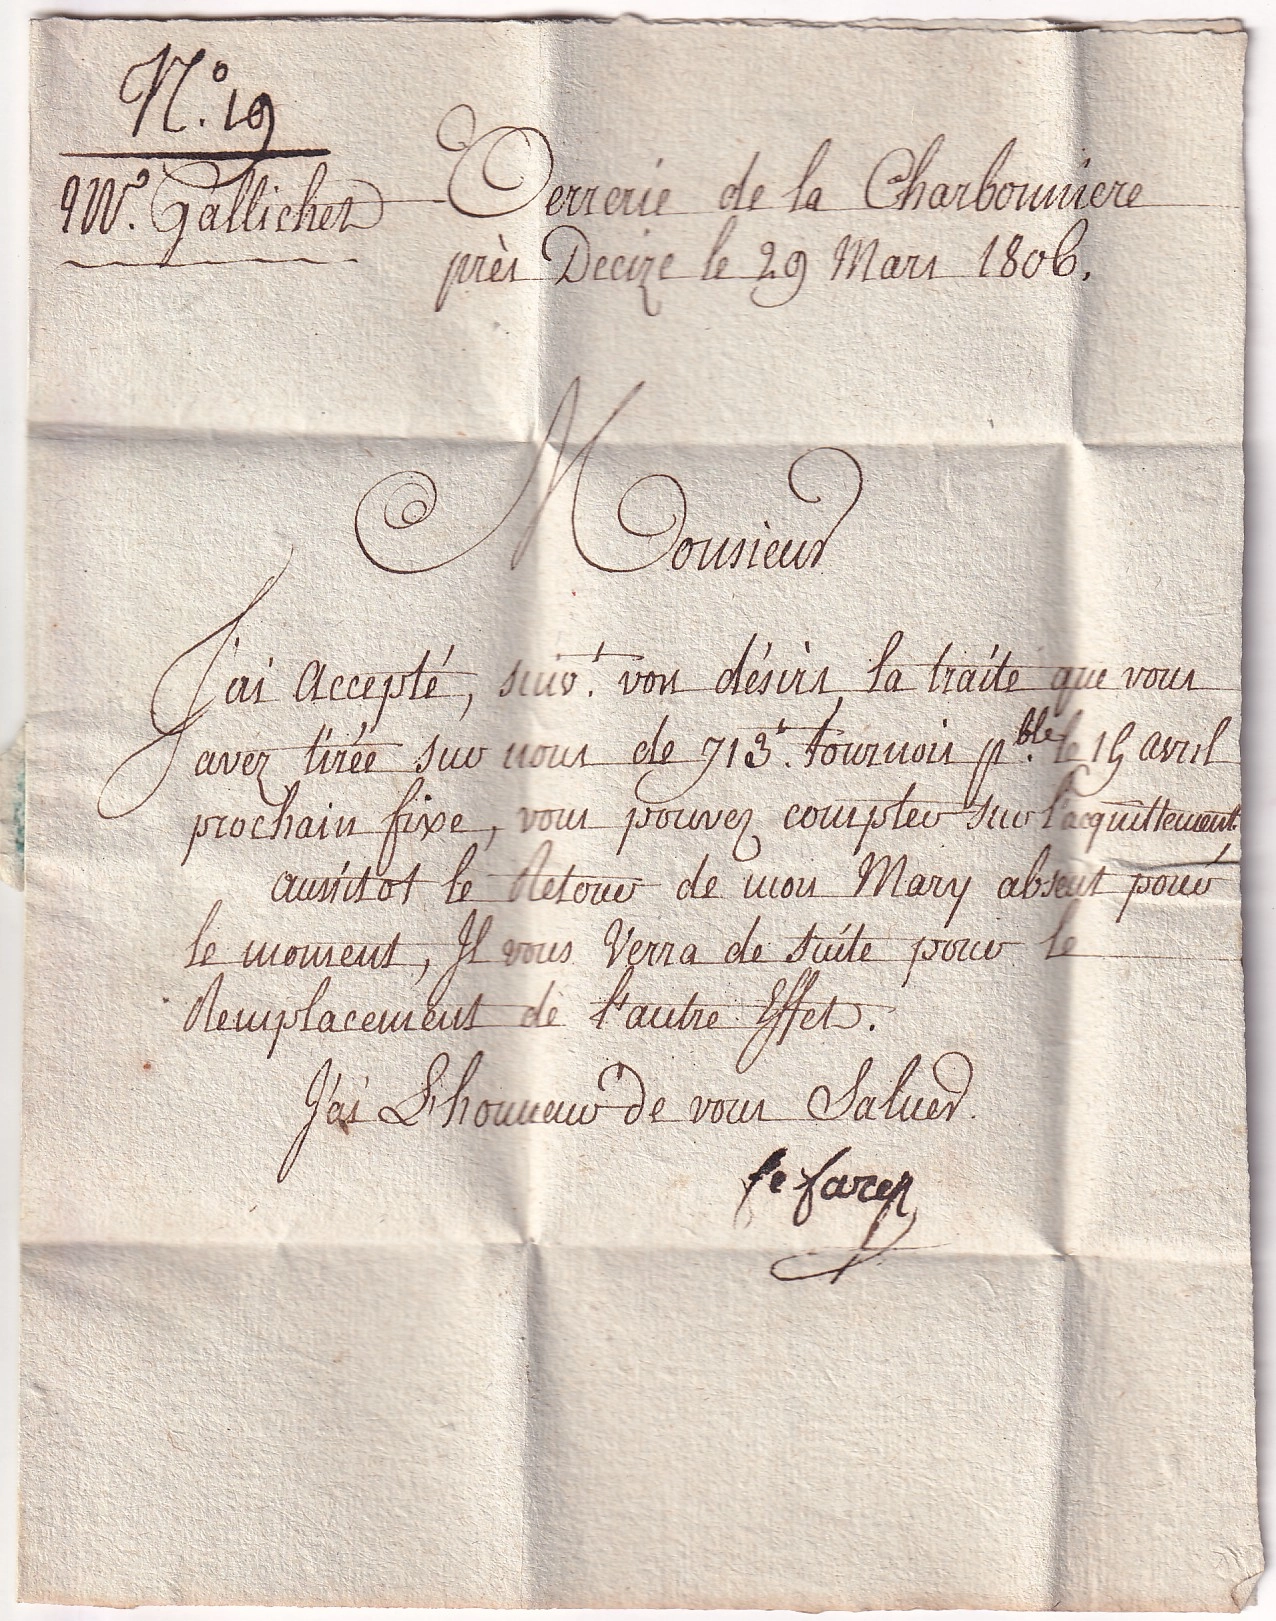 N.o 19
Mr. Gallichet
Verrerie de la Charbonniere
près Decize le 29 Mars 1806.
Monsieur
J'ai accepté, suivt. vos désirs, la traite que vous
avez tirée sur nous de 713 tournois pble. le 15 avril
prochain fixe, vous pouvez compter sur l'acquittement.
aussitot le Retour de mon Mary absent pour
le moment, Il vous Verra de suite pour le
Remplacement de l'autre Effet.
J'ai L'honneur de vous Saluer.
fe